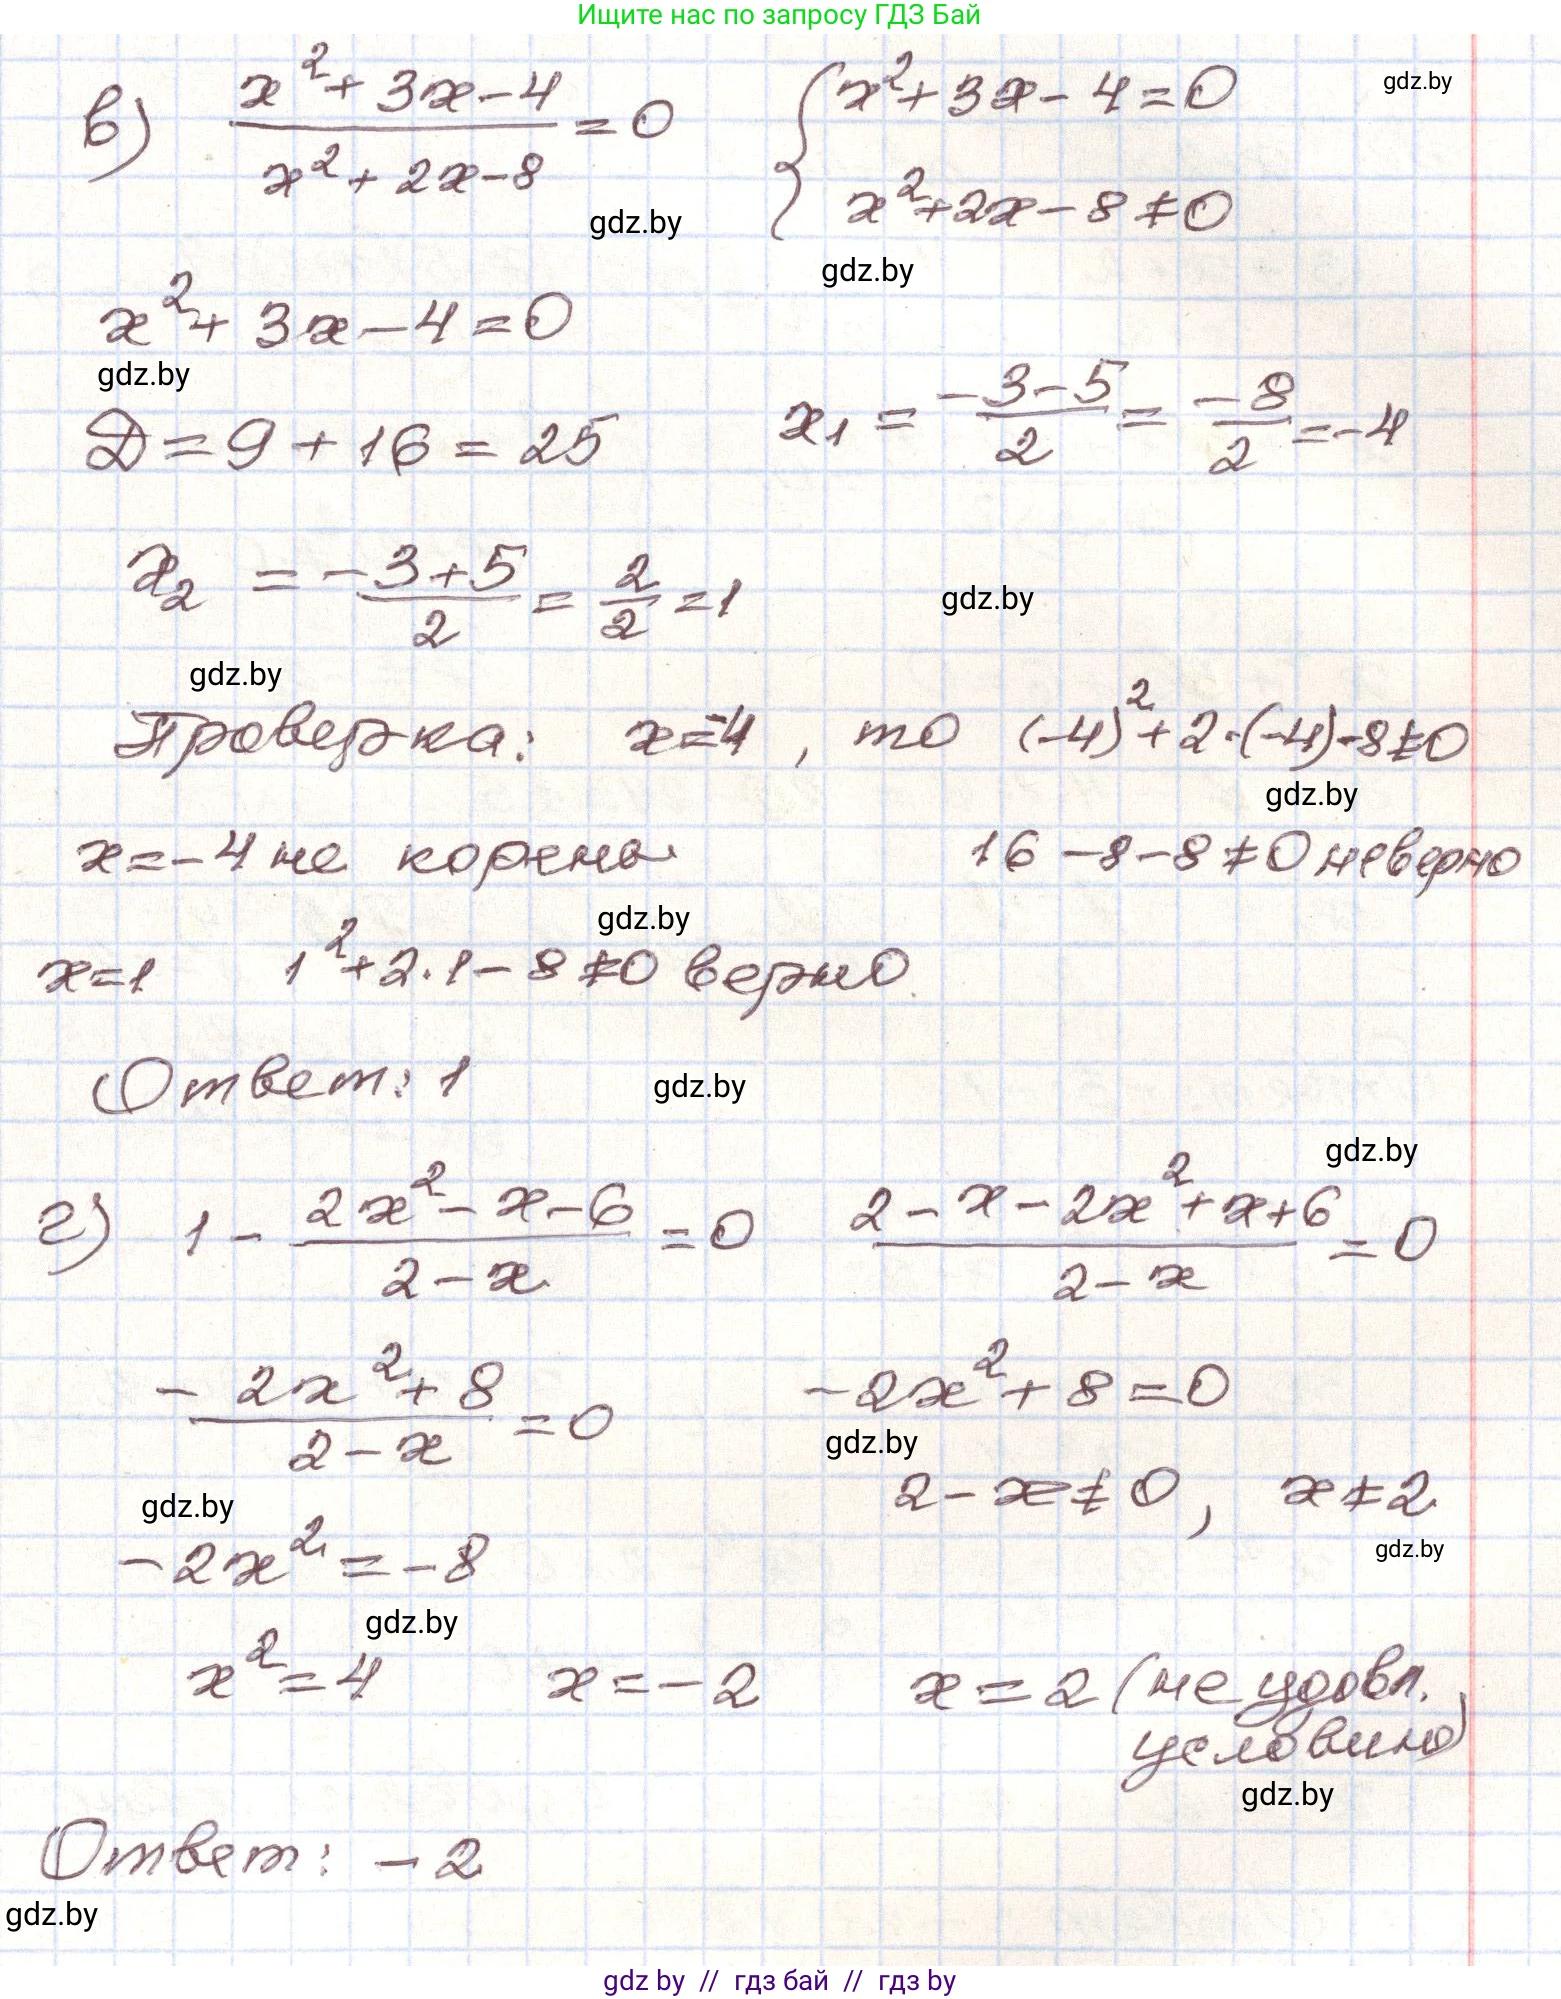 Ищите нас по запросу ГДЗ Бай
в) (x² + 3x - 4)/(x² + 2x - 8) = 0 { x² + 3x - 4 = 0
gdz.by
x² + 2x - 8 ≠ 0
gdz.by
gdz.by
x² + 3x - 4 = 0
gdz.by
D = 9 + 16 = 25 x₁ = (-3-5)/2 = -8/2 = -4
x₂ = (-3+5)/2 = 2/2 = 1 gdz.by
gdz.by
Проверка: x=-4, то (-4)² + 2·(-4)-8≠0
gdz.by
x=-4 не корень 16-8-8≠0 неверно
gdz.by
x=1 1²+2·1-8≠0 верно
Ответ: 1 gdz.by
gdz.by
г) 1 - (2x² - x - 6)/(2 - x) = 0 (2 - x - 2x² + x + 6)/(2 - x) = 0
(-2x² + 8)/(2 - x) = 0 -2x² + 8 = 0
gdz.by
2 - x ≠ 0, x ≠ 2
gdz.by
gdz.by
-2x² = -8
gdz.by
x² = 4 x = -2 x = 2 (не удовл.
условию)
gdz.by
Ответ: -2
gdz.by
gdz by // гдз бай // гдз by